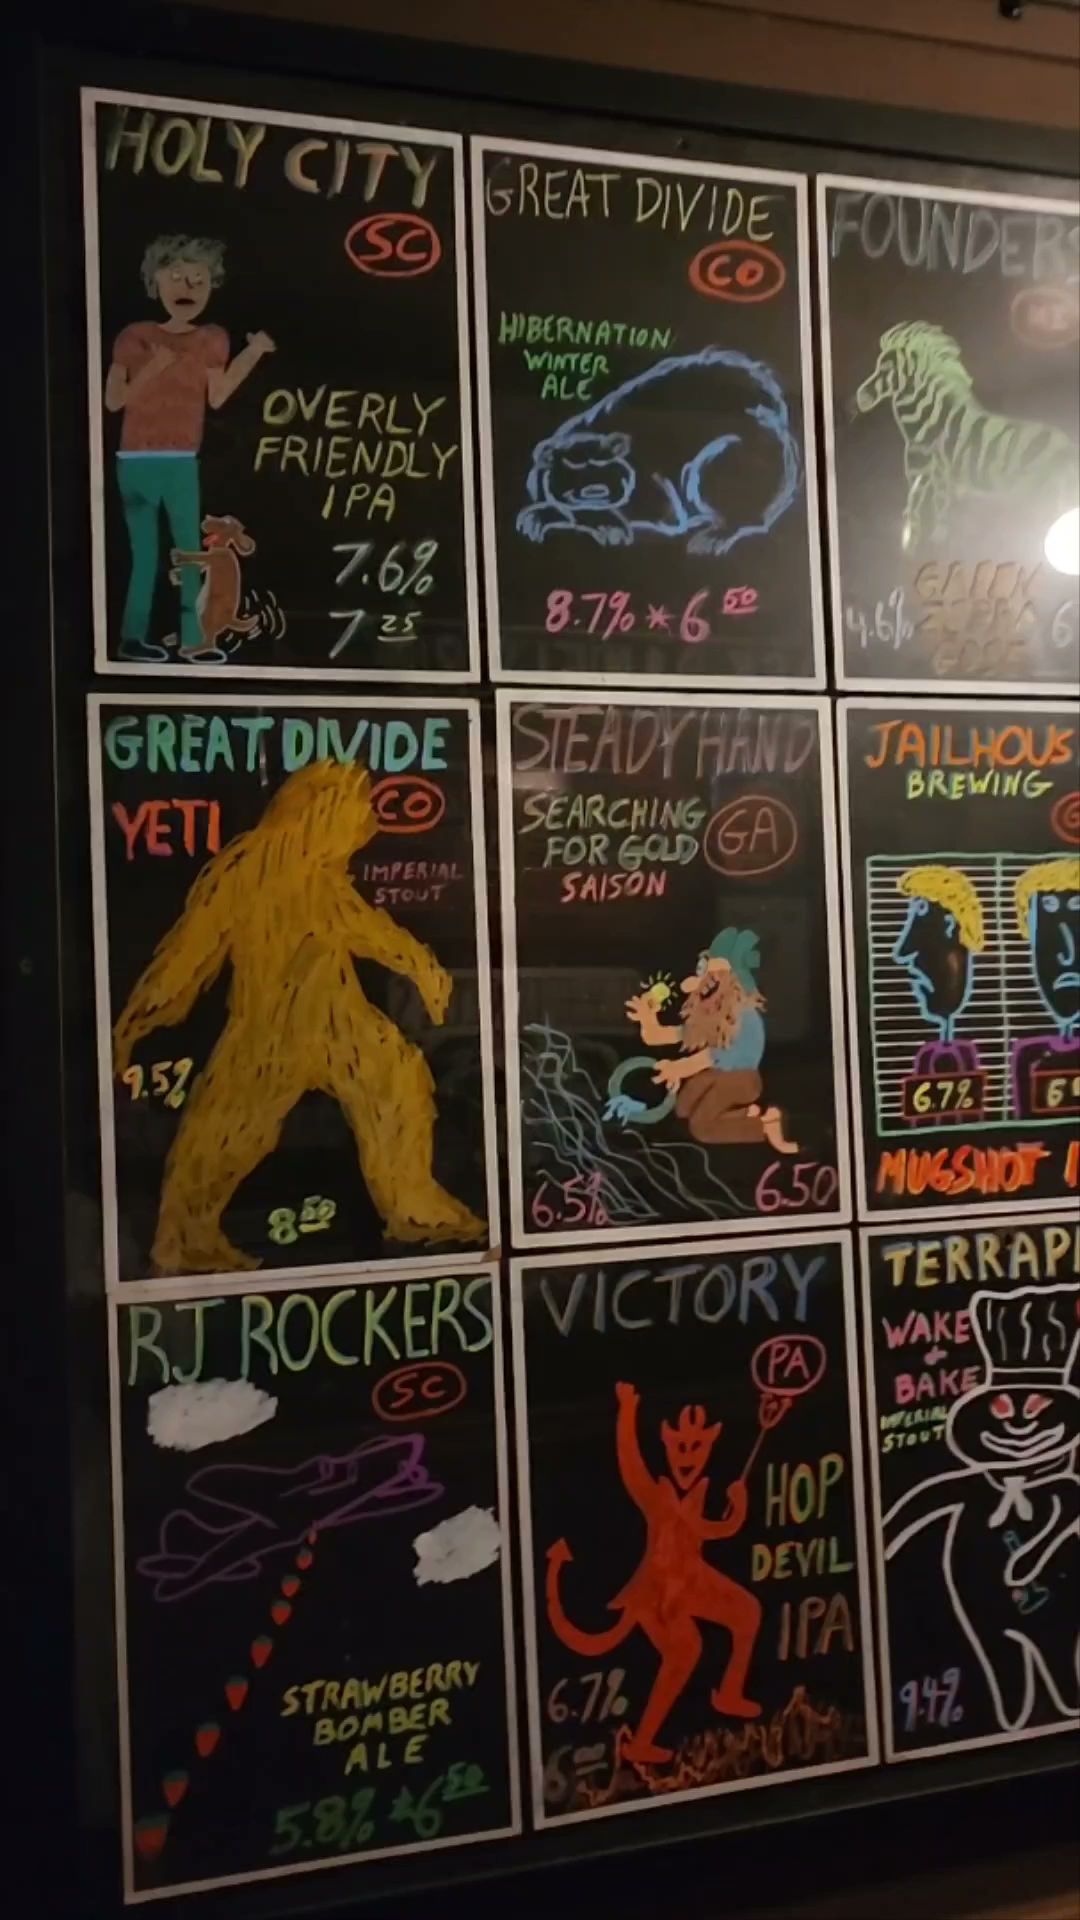 HOLY CITY
SC
OVERLY
FRIENDLY
IPA
7.6%
7 25
GREAT DIVIDE
CO
HIBERNATION
WINTER
ALE
8.7% * 6 50
FOUNDERS
MI
4.6%
GREEN
ZEBRA
GOSE
6
GREAT DIVIDE
YETI
CO
IMPERIAL
STOUT
9.5%
8 50
STEADY HAND
SEARCHING
FOR GOLD
SAISON
GA
6.5%
6.50
JAILHOUS
BREWING
G
6.7%
6
MUGSHOT I
RJ ROCKERS
SC
STRAWBERRY
BOMBER
ALE
5.8% * 6 50
VICTORY
PA
HOP
DEVIL
IPA
6.7%
6
TERRAPI
WAKE
+
BAKE
IMPERIAL
STOUT
9.4%